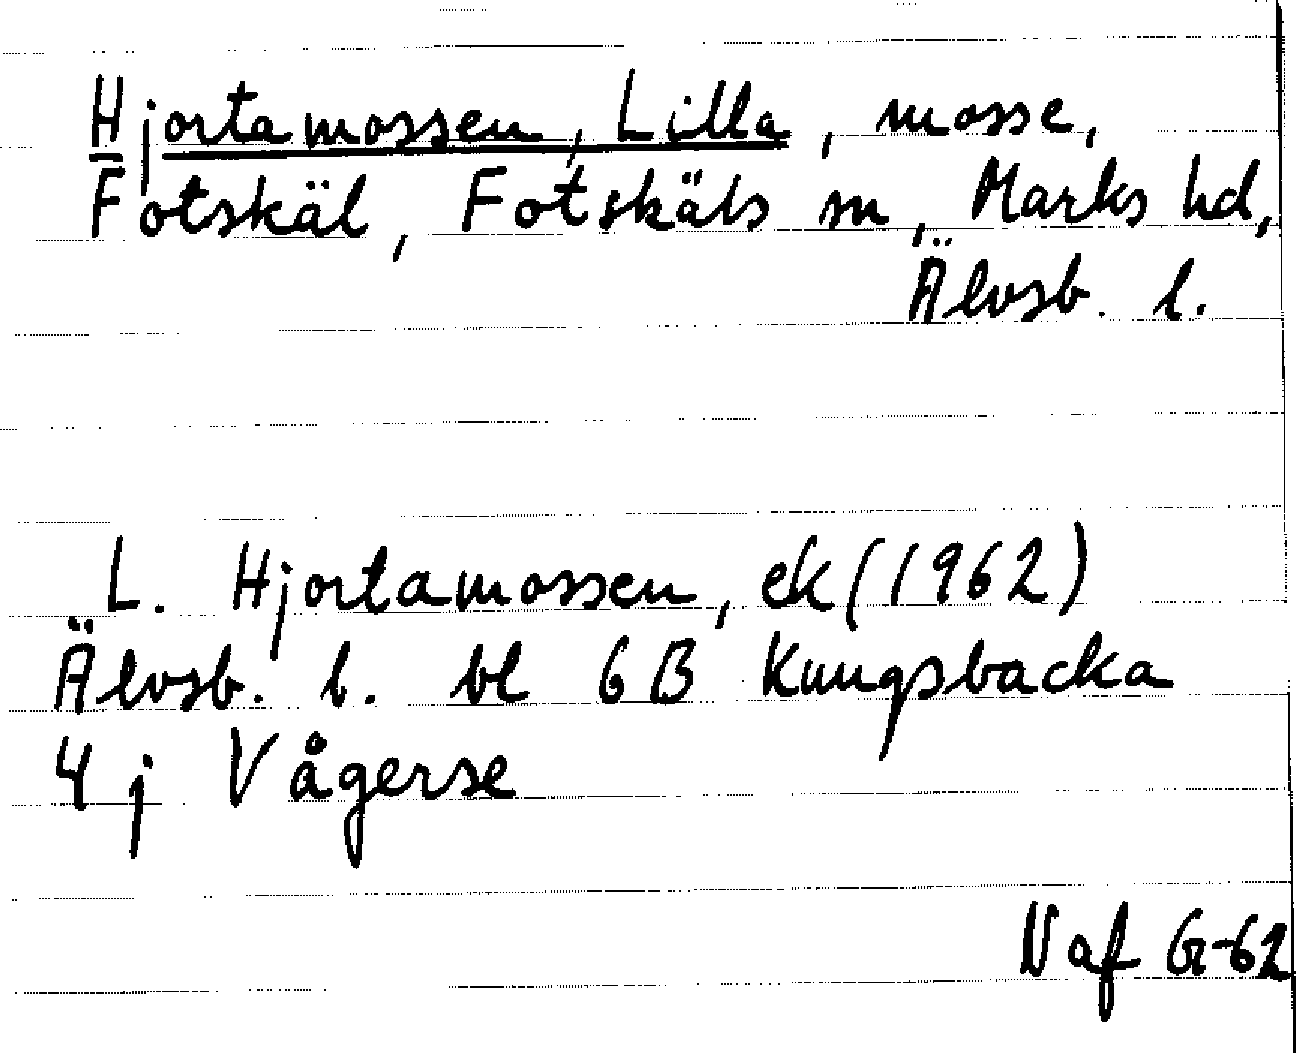 Hjortamossen, Lilla, mosse,
Fotskäl, Fotskäls sn, Marks hd,
Älvsb. l.
L. Hjortamossen, ek (1962)
Älvsb. l. bl 6B Kungsbacka
4 j Vågerse
Naf G-62